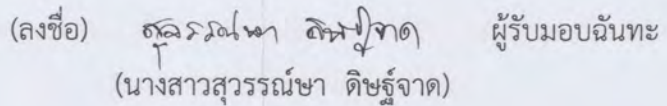 (ลงชื่อ) สุวรรณ์ษา ดิษฐ์จาด ผู้รับมอบฉันทะ
(นางสาวสุวรรณ์ษา ดิษฐ์จาด)